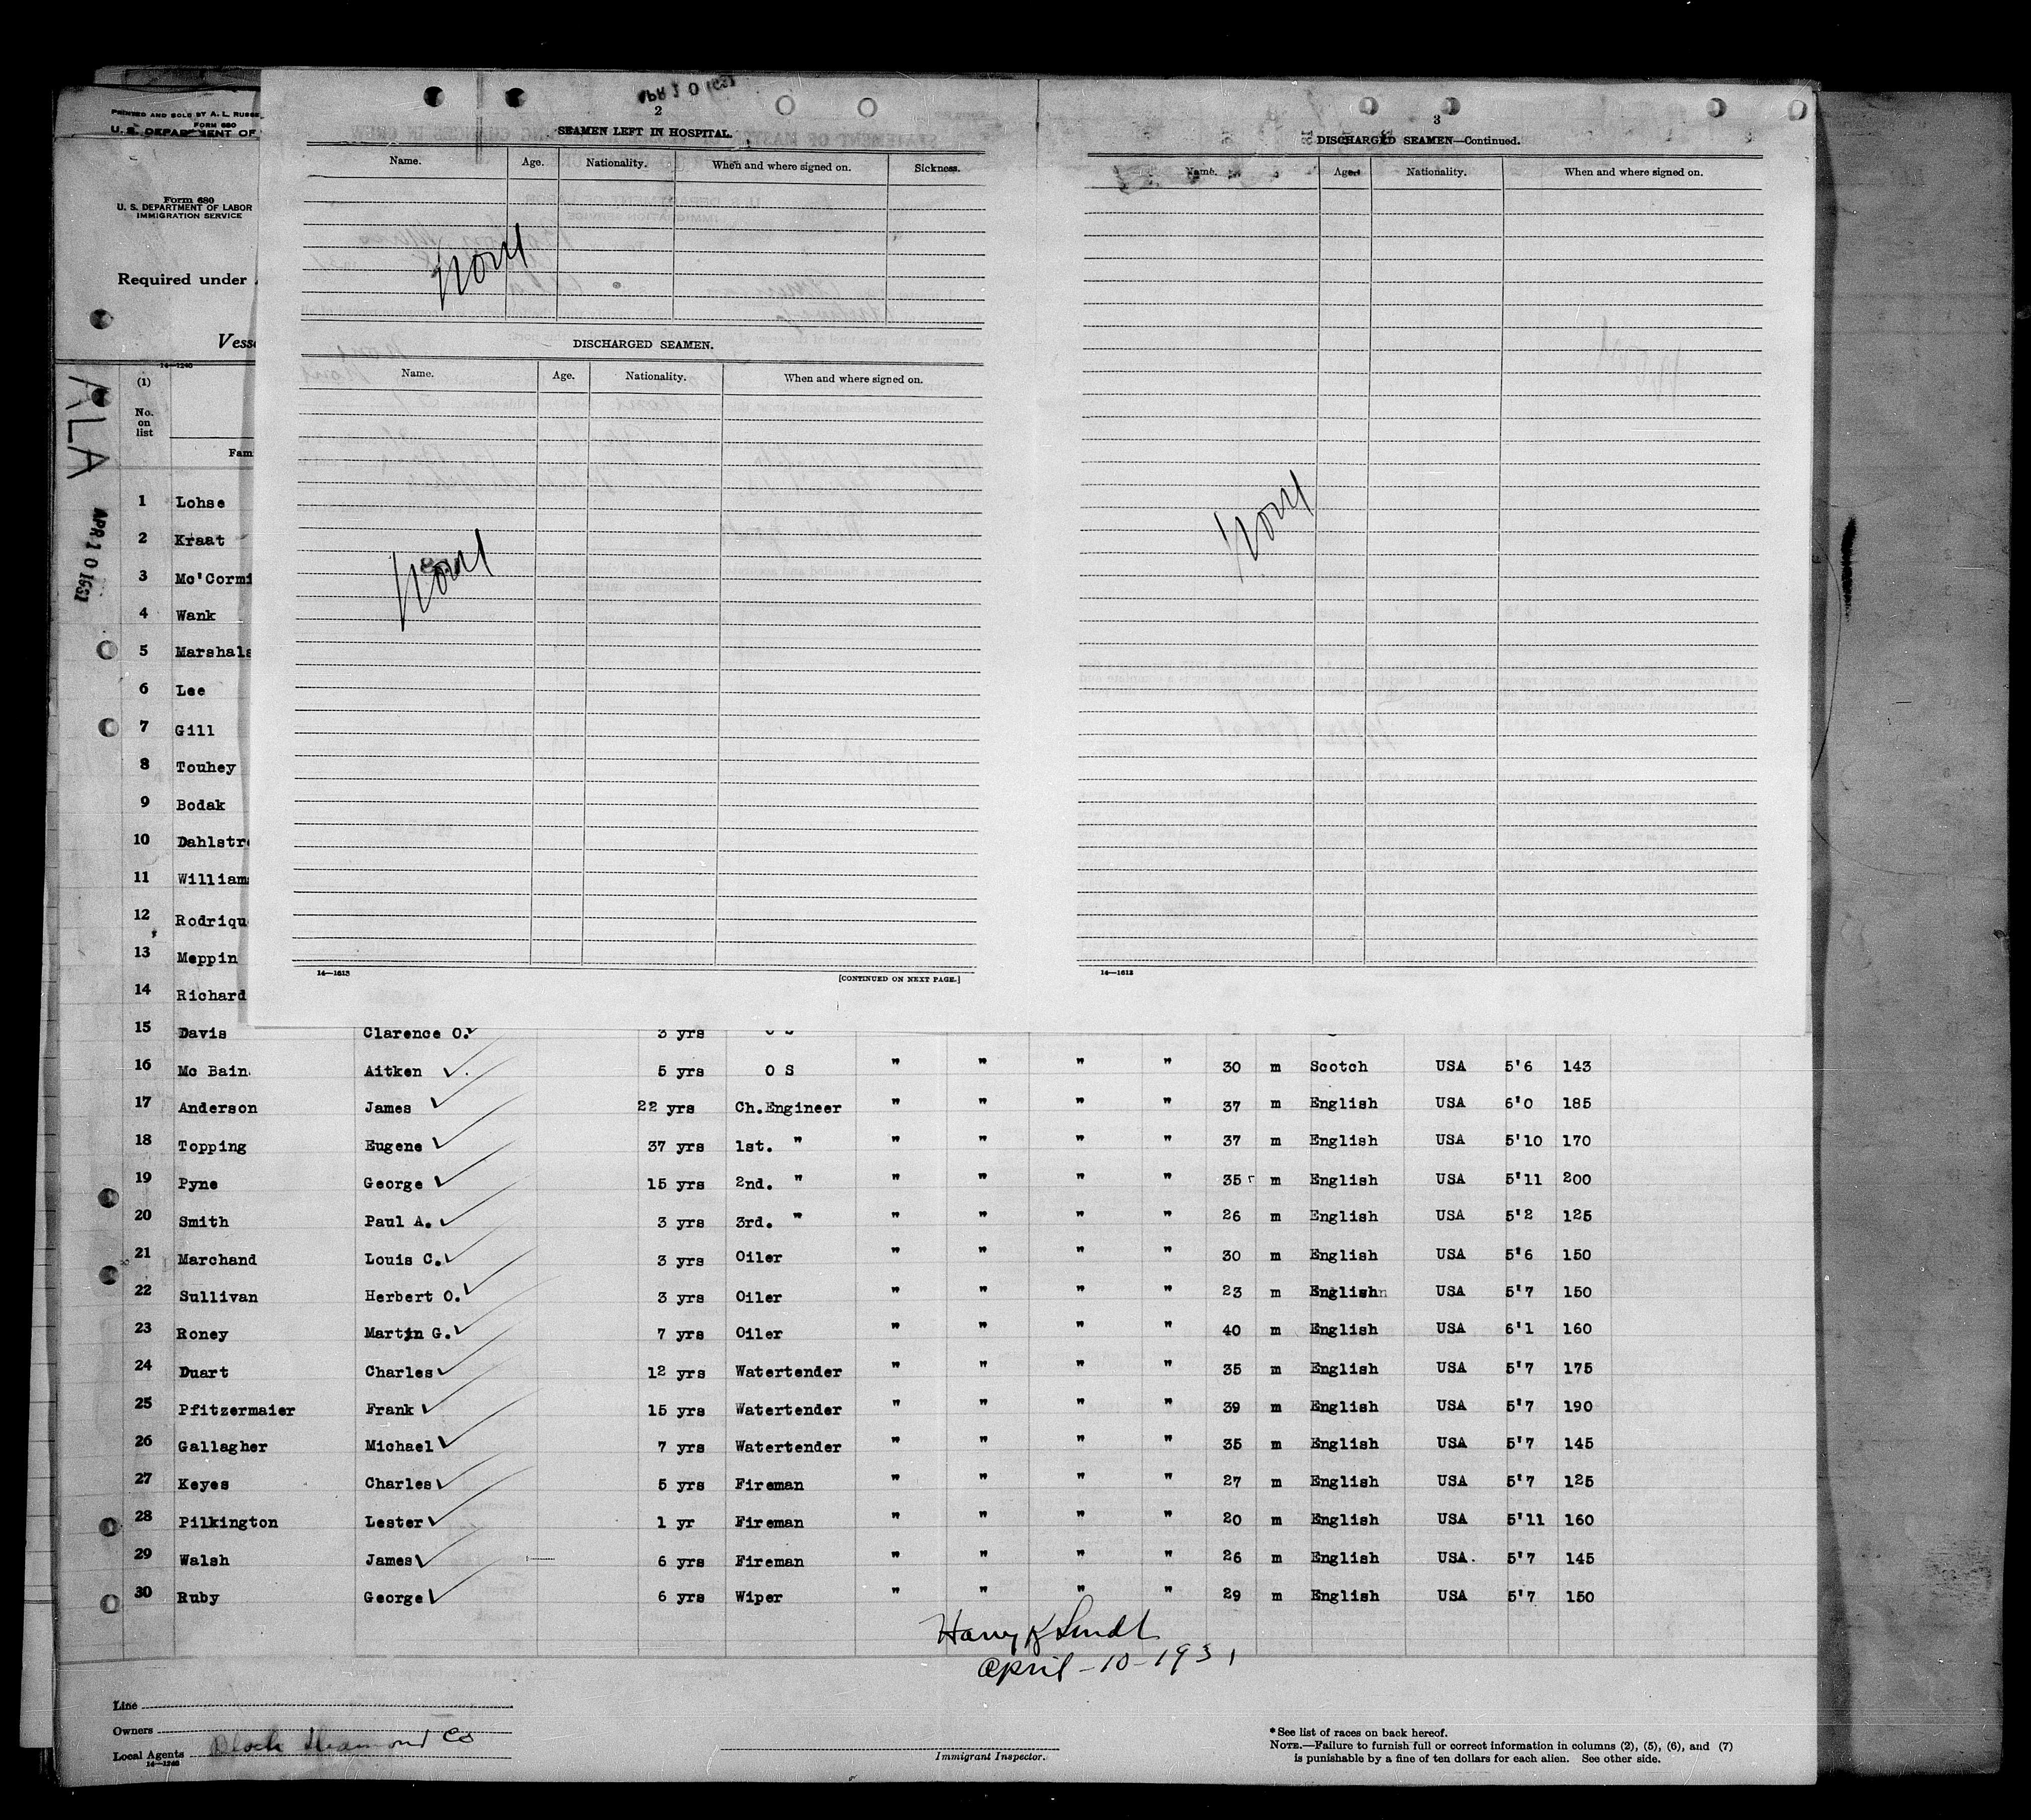 PRINTED AND SOLD BY A. L. RUSSE
FORM 680
U. S. DEPARTMENT OF
Form 680
U. S. DEPARTMENT OF LABOR
IMMIGRATION SERVICE
Required under
Vess
14—1240
(1)
No.
on
list
Fam
ALA
APR 10 1931
1 Lohse
2 Kraat
3 Mc'Cormi
4 Wank
5 Marshals
6 Lee
7 Gill
8 Touhey
9 Bodak
10 Dahlstr
11 William
12 Rodriqu
13 Meppin
14 Richard
APR 10 1931
2
SEAMEN LEFT IN HOSPITAL.
Name. Age. Nationality. When and where signed on. Sickness.
None
DISCHARGED SEAMEN.
Name. Age. Nationality. When and where signed on.
None
14—1613 [CONTINUED ON NEXT PAGE.]
3
DISCHARGED SEAMEN—Continued.
Name. Age. Nationality. When and where signed on.
None
14—1613
15 Davis Clarence O. 3 yrs O S
16 Mc Bain Aitken 5 yrs O S " " " " 30 m Scotch USA 5'6 143
17 Anderson James 22 yrs Ch.Engineer " " " " 37 m English USA 6'0 185
18 Topping Eugene 37 yrs 1st. " " " " " 37 m English USA 5'10 170
19 Pyne George 15 yrs 2nd. " " " " " 35 m English USA 5'11 200
20 Smith Paul A. 3 yrs 3rd. " " " " " 26 m English USA 5'2 125
21 Marchand Louis C. 3 yrs Oiler " " " " 30 m English USA 5'6 150
22 Sullivan Herbert O. 3 yrs Oiler " " " " 23 m English USA 5'7 150
23 Roney Martin G. 7 yrs Oiler " " " " 40 m English USA 6'1 160
24 Duart Charles 12 yrs Watertender " " " " 35 m English USA 5'7 175
25 Pfitzermaier Frank 15 yrs Watertender " " " " 39 m English USA 5'7 190
26 Gallagher Michael 7 yrs Watertender " " " " 35 m English USA 5'7 145
27 Keyes Charles 5 yrs Fireman " " " " 27 m English USA 5'7 125
28 Pilkington Lester 1 yr Fireman " " " " 20 m English USA 5'11 160
29 Walsh James 6 yrs Fireman " " " " 26 m English USA. 5'7 145
30 Ruby George 6 yrs Wiper " " " " 29 m English USA 5'7 150
Harry
April-10-1931
Line
Owners
Local Agents Black Diamond Co
14—1240
Immigrant Inspector.
* See list of races on back hereof.
NOTE.—Failure to furnish full or correct information in columns (2), (5), (6), and (7)
is punishable by a fine of ten dollars for each alien. See other side.